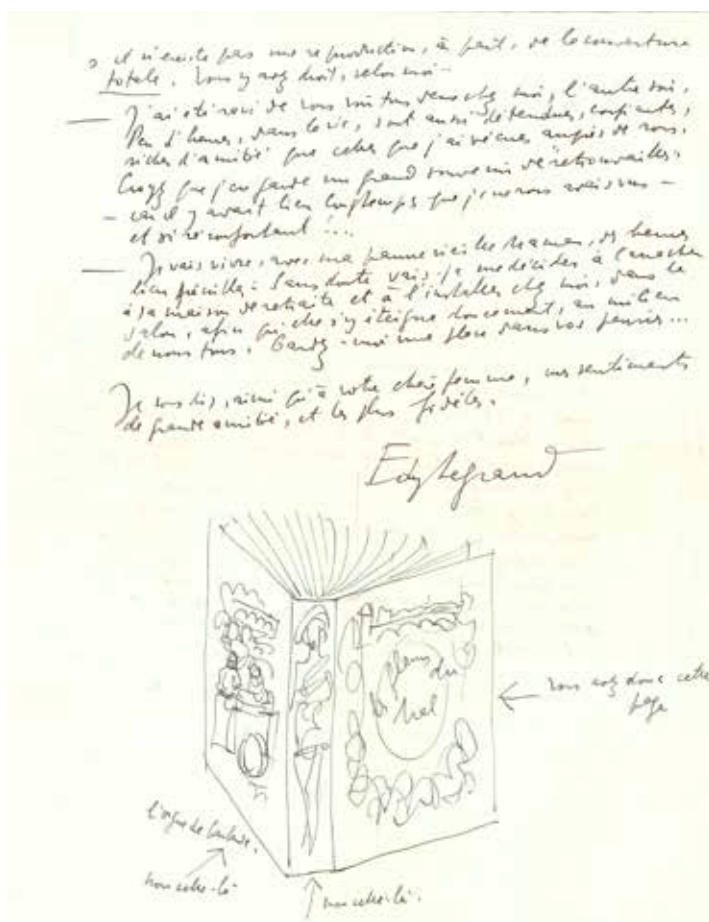 il n'existe pas une reproduction, à part, de la couverture
totale. Vous y avez droit, selon moi —
— J'ai été ravi de vous voir tous deux chez moi, l'autre soir.
Peu d'heures, dans la vie, sont aussi détendues, confiantes,
riches d'amitié que celles que j'ai vécues auprès de vous.
Croyez que j'en garde un grand souvenir de retrouvailles.
— car il y avait bien longtemps que je ne vous avais vus —
et si réconfortant !...
— Je vais vivre, avec ma pauvre vieille maman, des heures
bien pénibles. Sans doute vais-je me décider à l'arracher
à sa maison de retraite et à l'installer chez moi, dans le
salon, afin qu'elle s'y éteigne doucement, au milieu
de nous tous. Gardez-moi une place dans vos pensées...
Je vous dis, ainsi qu'à votre chère femme, mes sentiments
de grande amitié, et les plus fidèles.
Edy Legrand
Les fleurs
du
Mal
← vous avez donc cette
page
l'orgue de barbarie.
non celle-là
non celle-là.